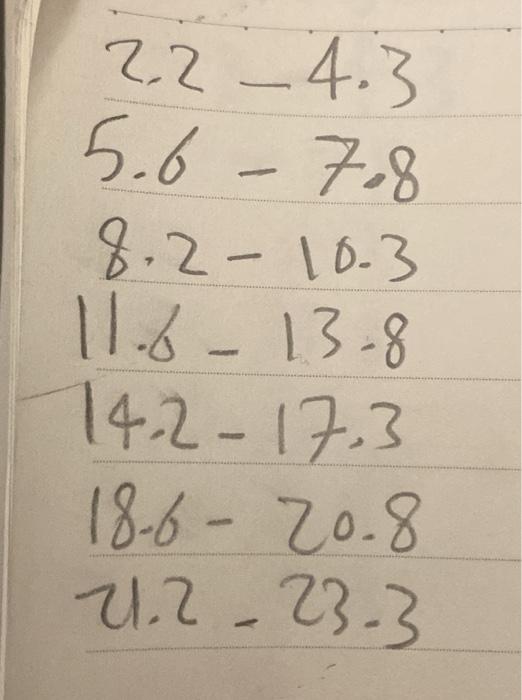 2.2 - 4.3
5.6 - 7.8
8.2 - 10.3
11.6 - 13.8
14.2 - 17.3
18.6 - 20.8
21.2 - 23.3